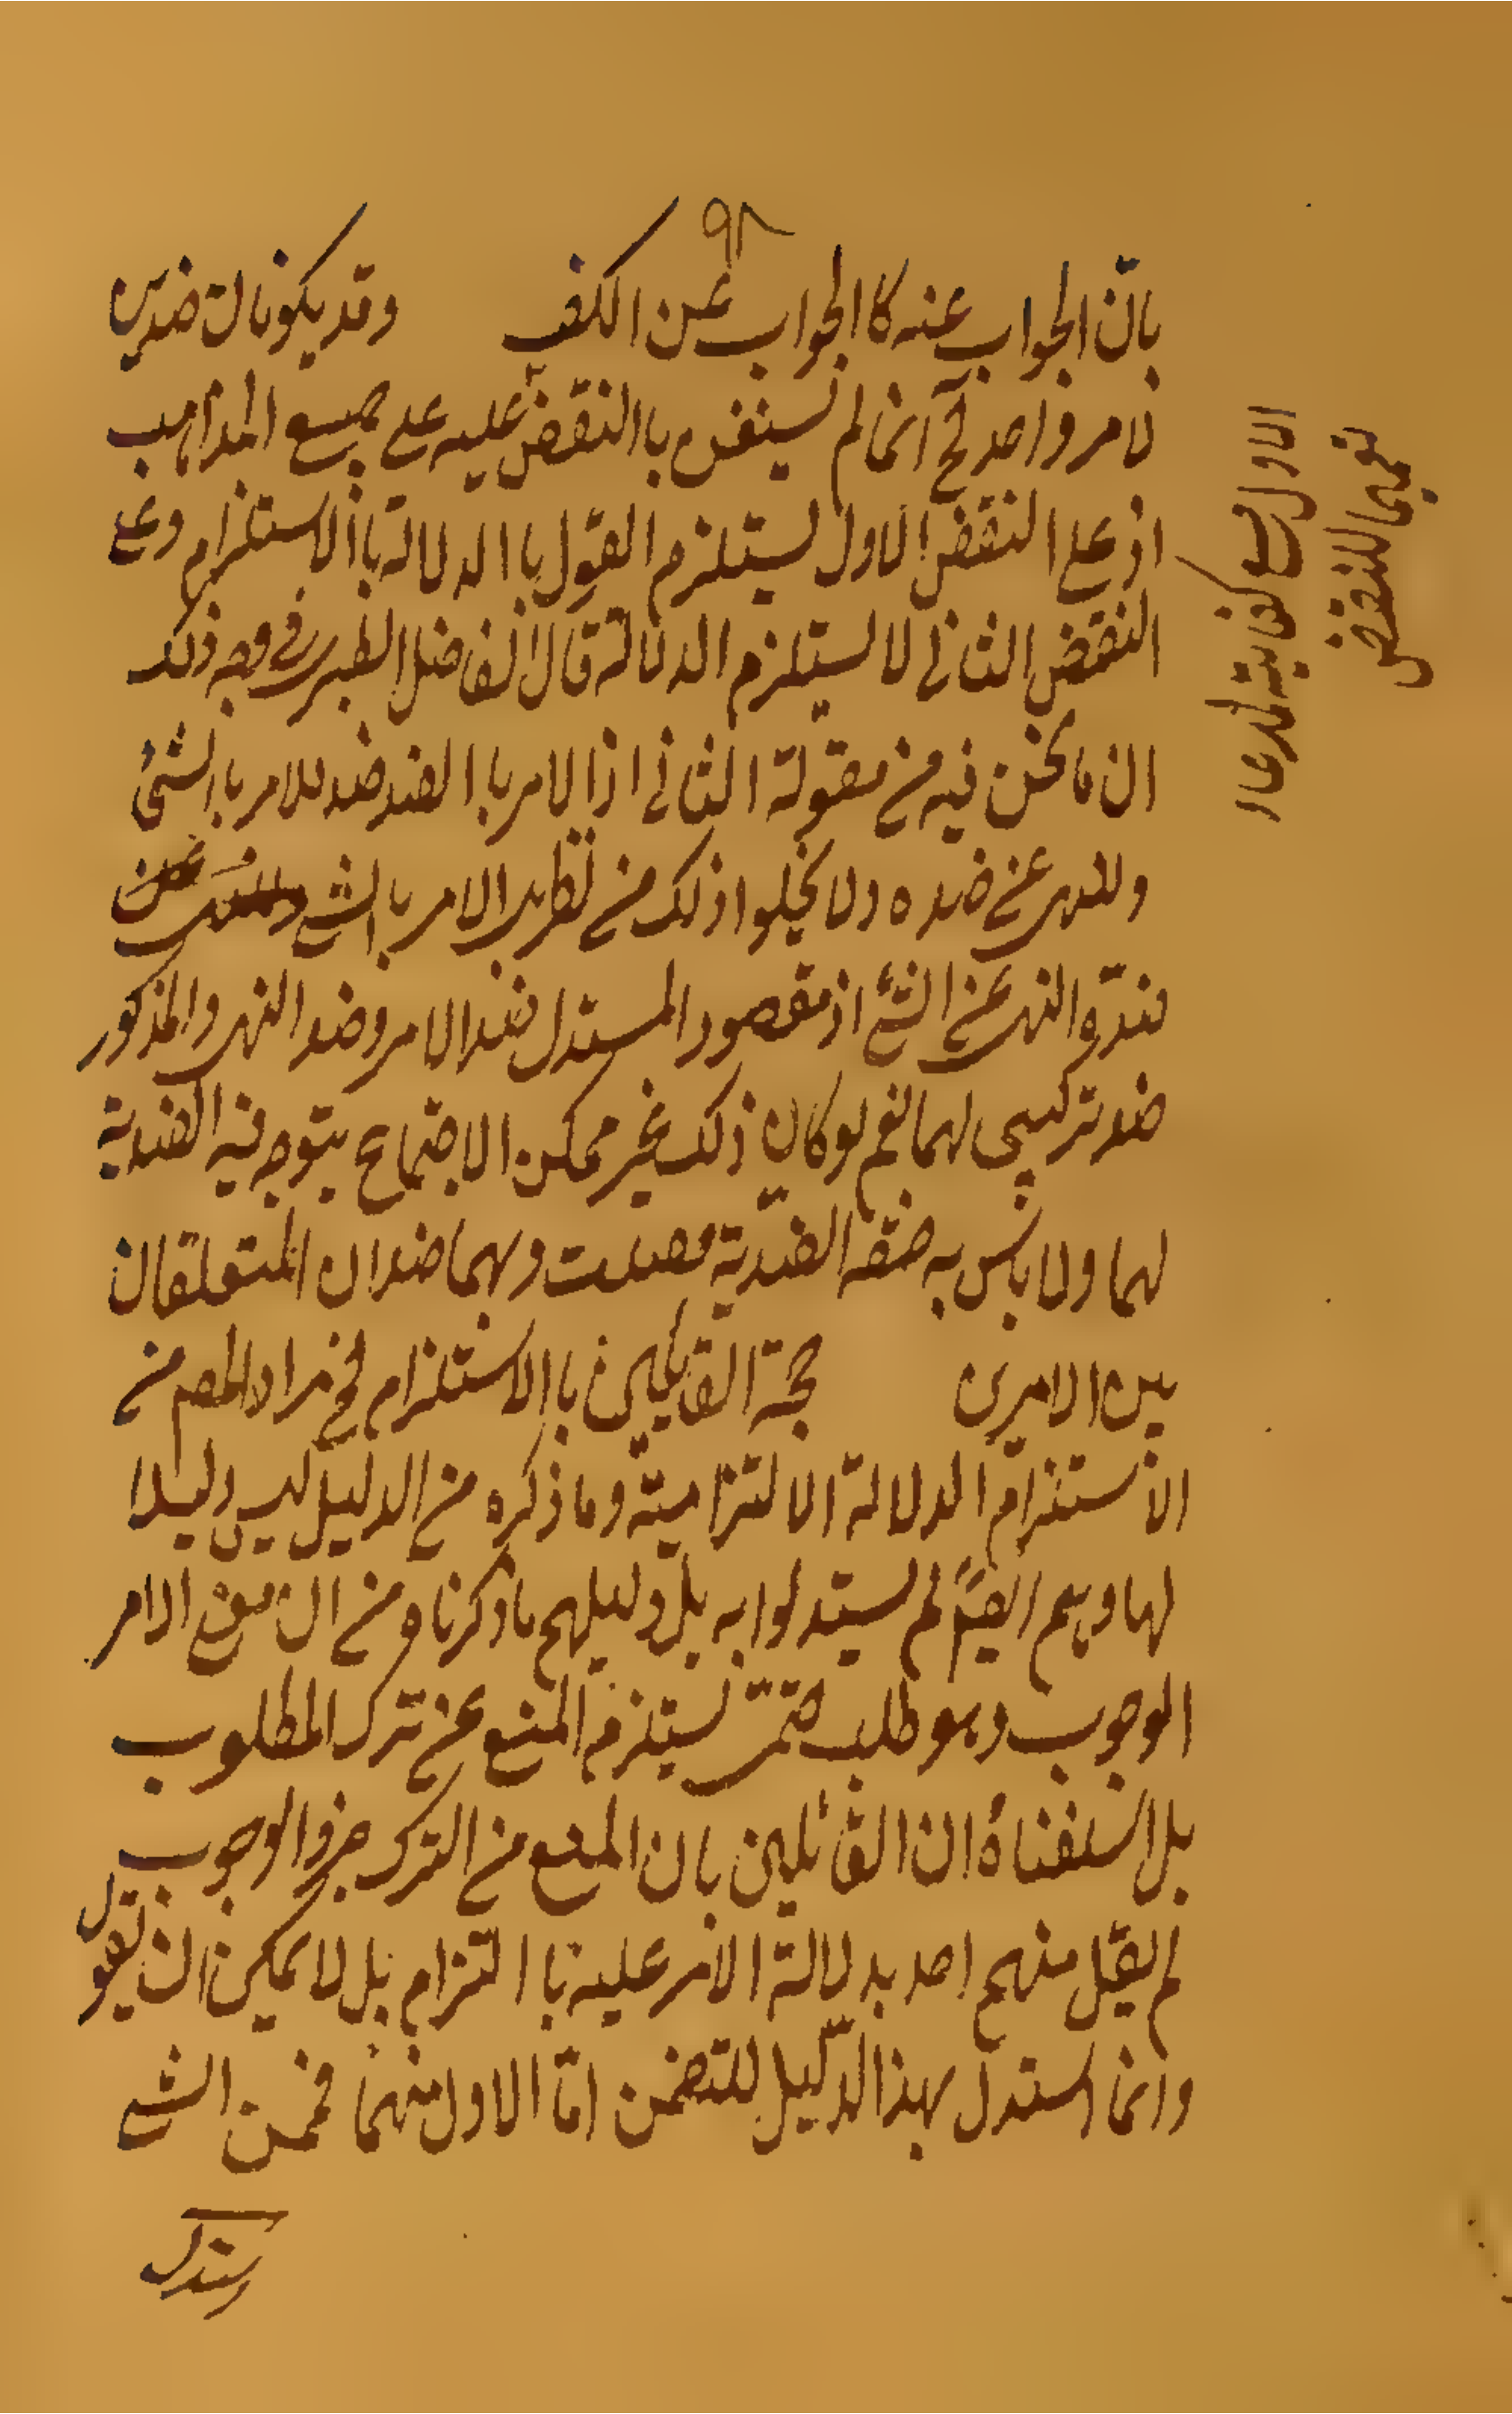 ٩٢
بانّ الجواب عنه كا الجواب عن الكف وقد يكونان ضدين
لامر واحد لح انما لم يستغن باالنقض عليه على جميع المذاهب
اذ على النقض الاول يستلزم القول باالدلالة باالاستلزام وعلى
النقض الثانى لا يستلزم الدلالة قال الفاضل الطبرى فى وجه ذلك
ان ما نحن فيه من مقولة الثانى اذا الامر باالضد ضد للامر بالشئ
وللنهى عن ضده ولا يخلوا ذلك من نظر الامر بالشئ
ضده النهى عن الشئ اذ مقصود المستدل ضد الامر وضد النهى والمذكور
ضد تركيبى لهما نعم لو كان ذلك غير ممكن الاجتماع يتوجه فيه الضدية
لهما ولا باس به الضدّية وهما ضدان المتعلقان
بين الامرين حجة القايلين باالاستلزام لح مراد المصم من
الاستلزام الدلالة الالتزامية وما ذكره من الدليل ليس دليلا
لها وهم ايضًا لم يستدلوا به بل دليلهم ما ذكرناه من ان الامر
الوجوب وهو طلب حتمى يستلزم المنع عن ترك المطلوب
بل ان القائلين بان المنع من الترك جزو الوجوب
لم يقل منهم احد بدلالة الامر عليه باالتزام بل لا يمكن ان يقول
وانما استدل بهذا الدّليل للتضمن امّا الاول منهما فمن الشئ
يستدل